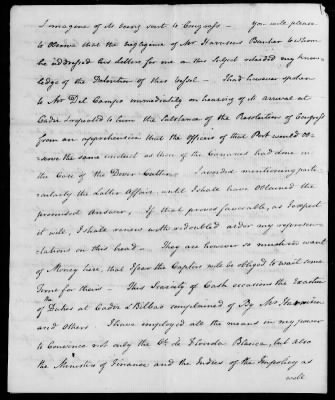 Imagine of its being sent to Congress — you will please
to observe that the negligence of Mr Harrison's Banker to whom
he addressed his Letters for me on this subject retarded my know-
ledge of the Detention of this Vessel — I had however spoken
to Mr Del Campo immediately on hearing of its arrival at
Cadiz & repeated to him the Substance of the Resolution of Congress
from an apprehension that the officers of that Port would ob-
serve the same conduct as those of the Canaries had done in
the Case of the Dover Cutter — I avoided mentioning parti-
cularly the Latter Affair until I shall have obtained the
promised answer, If that proves favorable, as I expect
it will, I shall renew with redoubled ardor my represen-
tations on this head — They are however so much in want
of Money here, that I fear the Captors will be obliged to wait some
time for theirs — This Scarcity of Cash occasions the Exaction
of Duties at Cadiz & Bilbao complained of by Mr Harrison
and others — I have employed all the means in my power
to Convince not only the Ct. de Florida Blanca, but also
the Ministers of Finance and the Indies of the Impolicy as
well